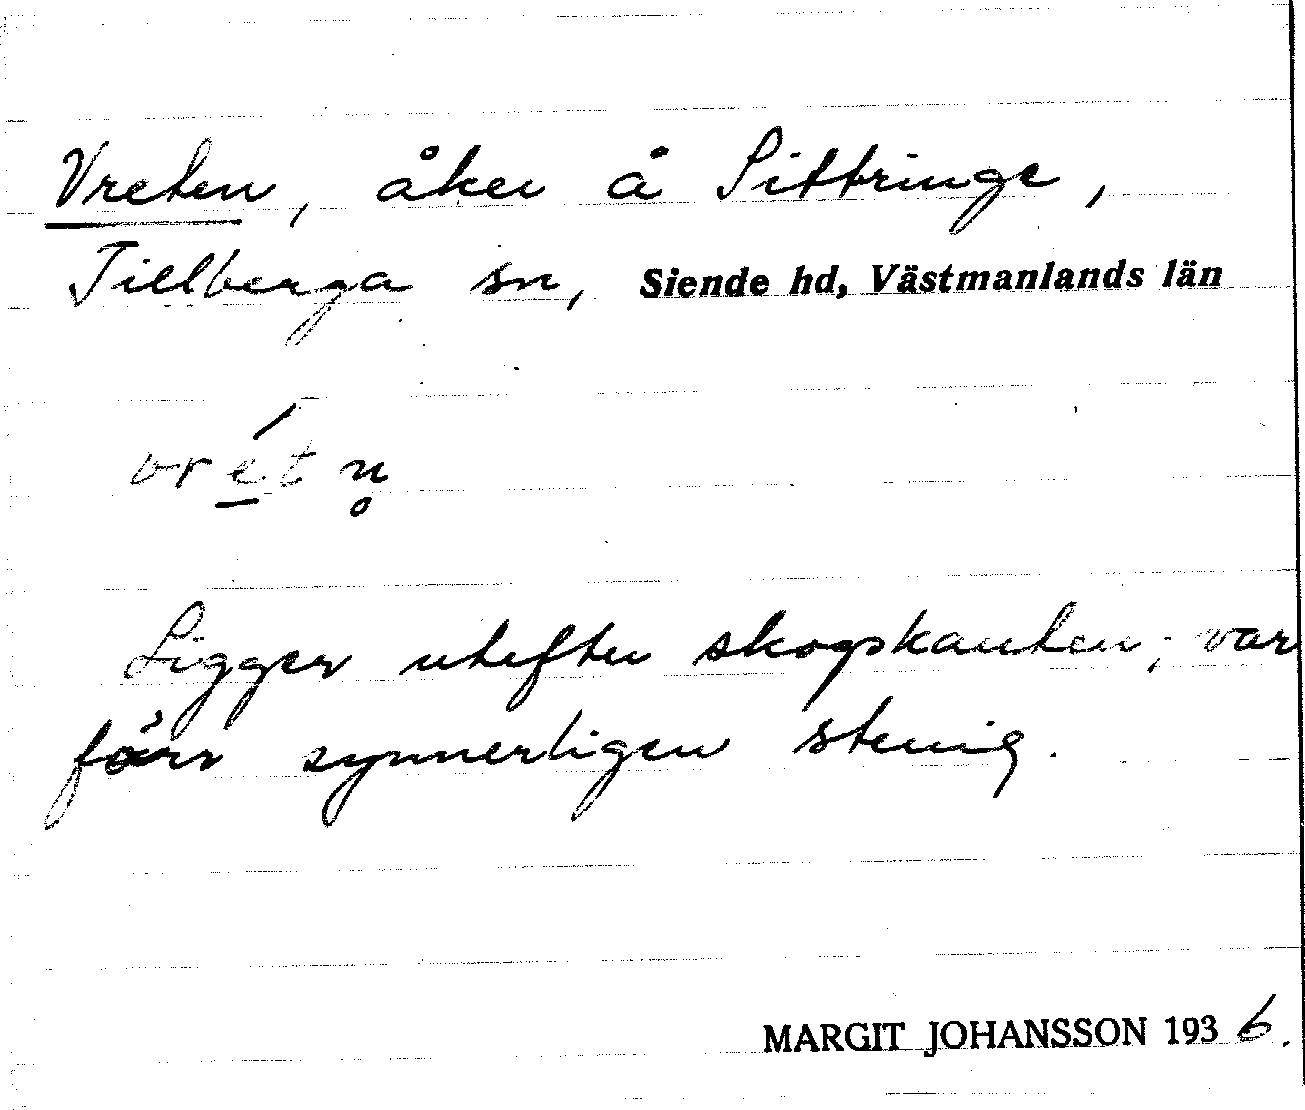 Vreten, åker å Sittringe,
Tillberga sn, Siende hd, Västmanlands län
vre̲´t n̥
Ligger utefter skogskanten; var
förr synnerligen stenig.
MARGIT JOHANSSON 1936.